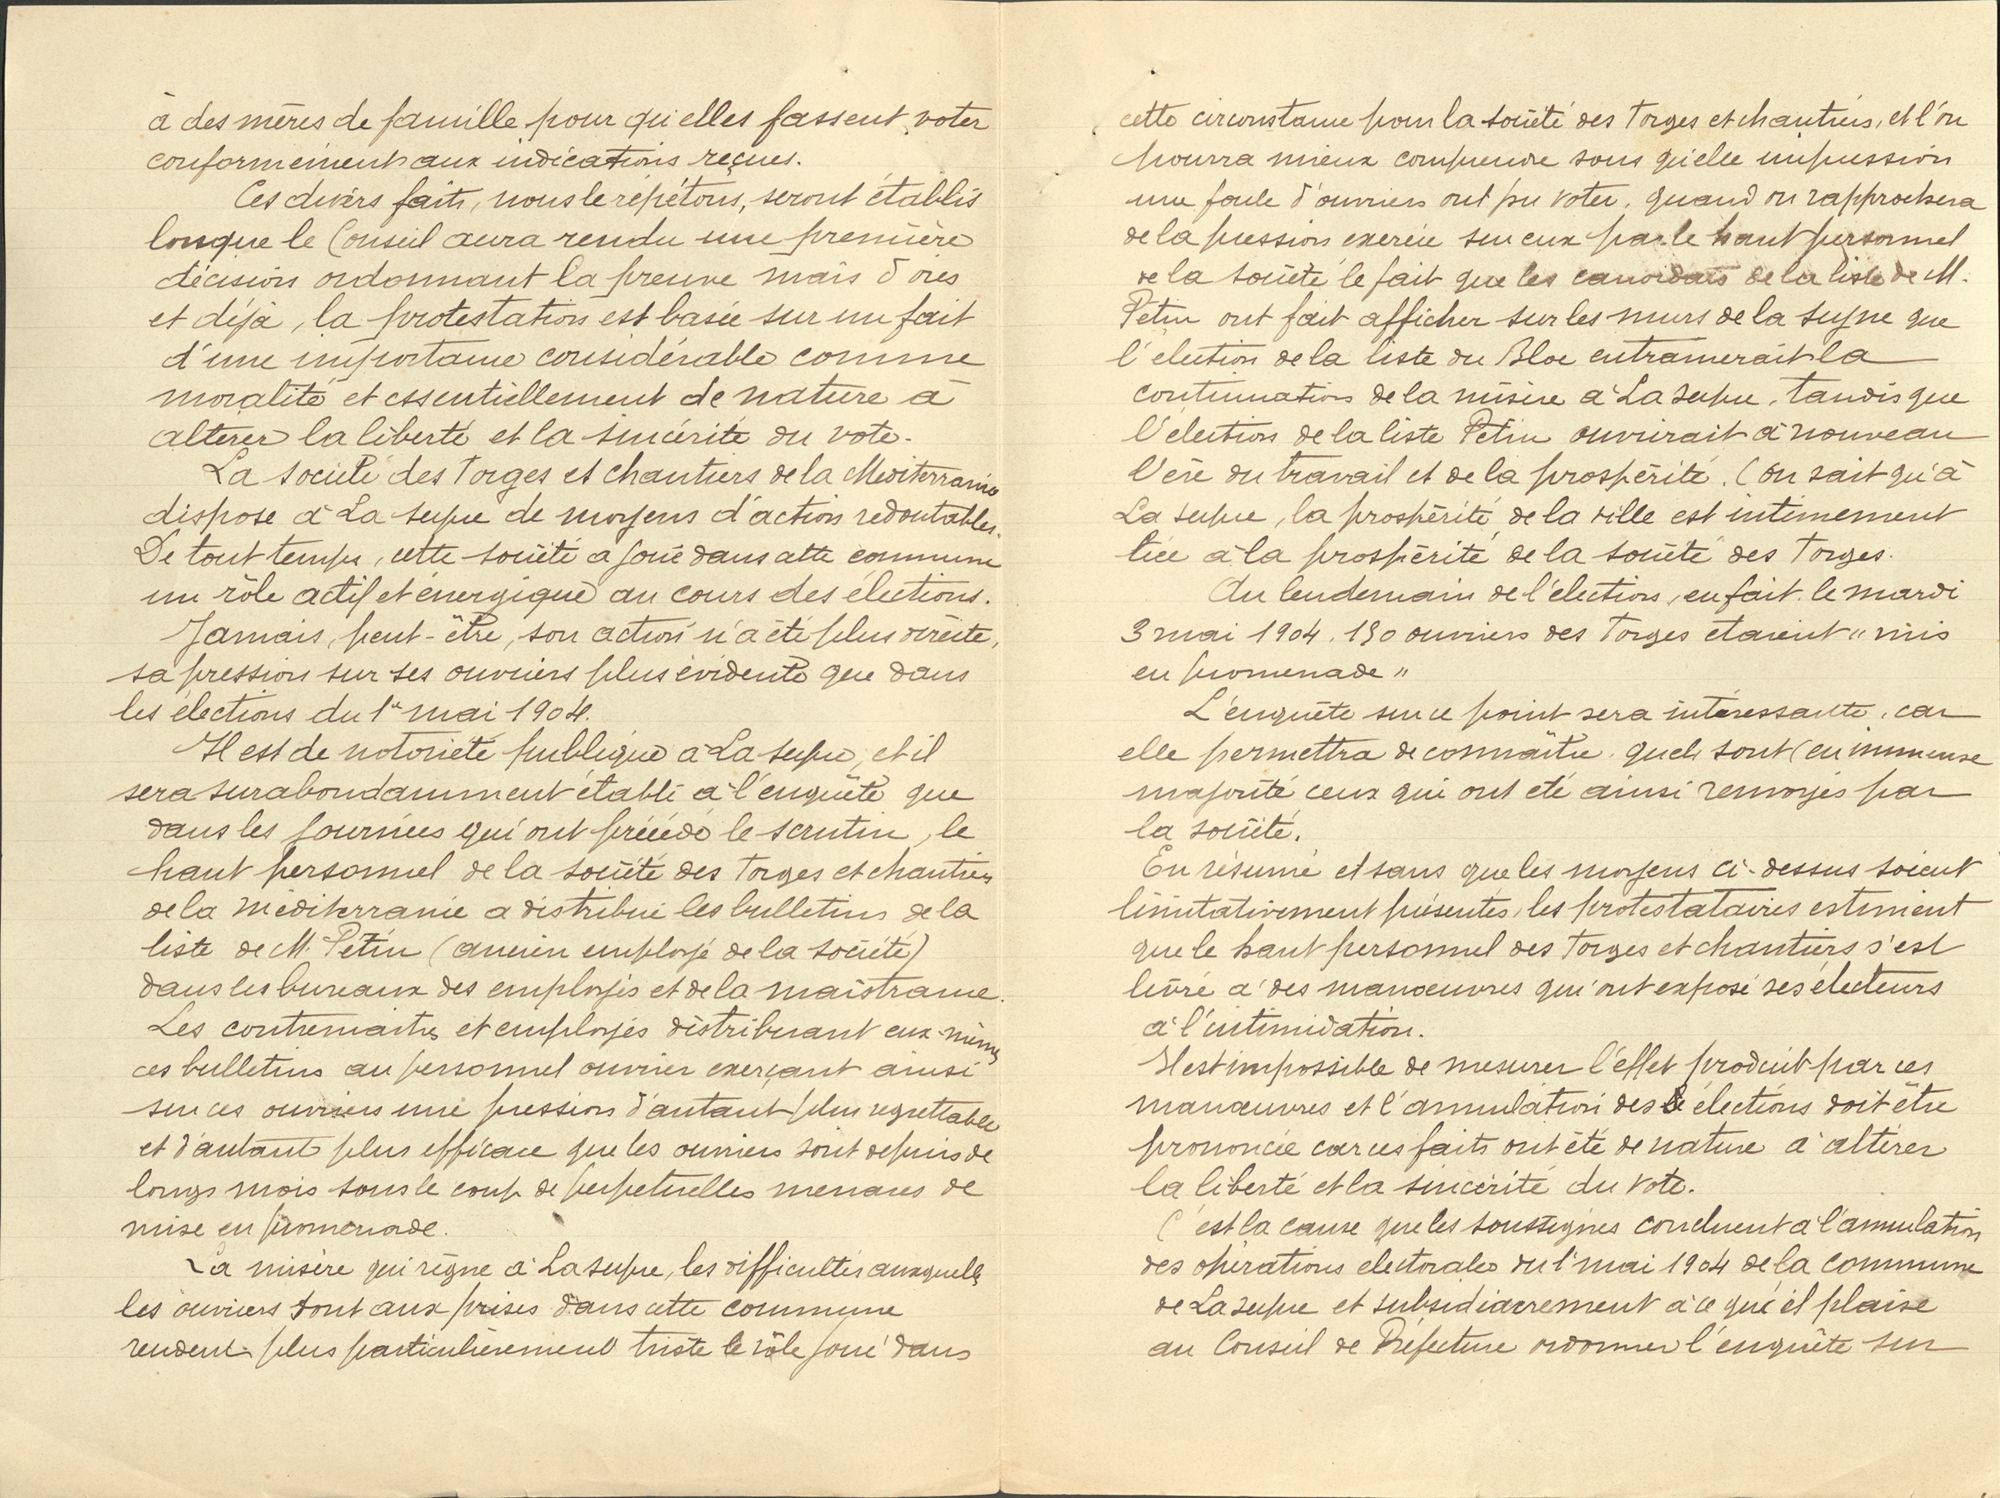 à des mères de famille pour qu'elles fassent voter
conformément aux indications reçues.
Ces divers faits, nous le répétons, seront établis
lorsque le Conseil aura rendu une première
décision ordonnant la preuve mais d'ores
et déjà, la protestation est basée sur un fait
d'une importance considérable comme
moralité et essentiellement de nature à
altérer la liberté et la sincérité du vote.
La société des Forges et chantiers de la Méditerranée
dispose à La Seyne de moyens d'action redoutables.
De tout temps, cette société a joué dans cette commune
un rôle actif et énergique au cours des élections.
Jamais, peut-être, son action n'a été plus directe,
sa pression sur ses ouvriers plus évidente que dans
les élections du 1er mai 1904.
Il est de notoriété publique à La Seyne, et il
sera surabondamment établi à l'enquête que
dans les journées qui ont précédé le scrutin, le
haut personnel de la société des Forges et chantiers
de la méditerranée a distribué les bulletins de la
liste de M. Pétin (ancien employé de la société)
dans les bureaux des employés et de la maistrance.
Les contremaîtres et employés distribuant eux-mêmes
ces bulletins au personnel ouvrier exerçant ainsi
sur ces ouvriers une pression d'autant plus regrettable
et d'autant plus efficace que les ouvriers sont depuis de
longs mois sous le coup de perpétuelles menaces de
mise en promenade.
La misère qui règne à La Seyne, les difficultés auxquelles
les ouvriers sont aux prises dans cette commune
rendent plus particulièrement triste le rôle joué dans
cette circonstance pour la société des Forges et chantiers, et l'on
pourra mieux comprendre sous quelle impression
une foule d'ouvriers ont pu voter, quand on rapprochera
de la pression exercée sur eux par le haut personnel
de la société le fait que les candidats de la liste de M.
Pétin ont fait afficher sur les murs de la Seyne que
l'élection de la liste du Bloc entrainerait la
continuation de la misère à La Seyne, tandis que
l'élection de la liste Pétin ouvrirait à nouveau
l'ère du travail et de la prospérité. (On sait qu'à
La Seyne, la prospérité de la ville est intimement
liée à la prospérité de la société des Forges.
Au lendemain de l'élection, en fait, le mardi
3 mai 1904, 190 ouvriers des Forges étaient "mis
en promenade"
L'enquête sur ce point sera intéressante, car
elle permettra de connaître quels sont (en immense
majorité ceux qui ont été ainsi renvoyés par
la société.
En résumé et sans que les moyens ci-dessus soient
limitativement présentés, les protestataires estiment
que le haut personnel des Forges et chantiers s'est
livré à des manœuvres qui ont exposé ses électeurs
à l'intimidation.
Il est impossible de mesurer l'effet produit par ces
manœuvres et l'annulation des élections doit être
prononcée car ces faits ont été de nature à altérer
la liberté et la sincérité du vote.
C'est la cause que les soussignés concluent à l'annulation
des opérations électorales du 1er mai 1904 de la commune
de La Seyne et subsidiairement à ce qu'il plaise
au Conseil de Préfecture ordonner l'enquête sur